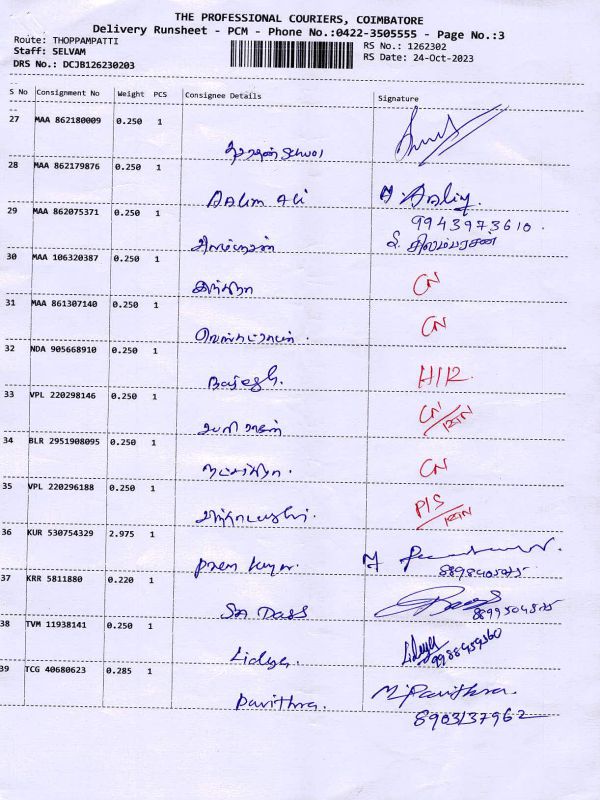 THE PROFESSIONAL COURIERS, COIMBATORE
Delivery Runsheet - PCM - Phone No.:0422-3505555 - Page No.:3
Route: THOPPAMPATTI
RS No.: 1262302
Staff: SELVAM
RS Date: 24-Oct-2023
DRS No.: DCJB126230203
S No Consignment No Weight PCS Consignee Details Signature
27 MAA 862180009 0.250 1
School
28 MAA 862179876 0.250 1
Aalim Ali
29 MAA 862075371 0.250 1
9943973610
சிலம்பரசன்
30 MAA 106320387 0.250 1
CN
31 MAA 861307140 0.250 1
CN
32 NDA 905668910 0.250 1
Rajesh. H/R
33 VPL 220298146 0.250 1
CN/RTN
34 BLR 2951908095 0.250 1
CN
35 VPL 220296188 0.250 1
P/S/RTN
36 KUR 530754329 2.975 1
prem kumar
37 KRR 5811880 0.220 1
SA Dass
38 TVM 11938141 0.250 1
Lidiya Lidiya
9988459360
39 TCG 40680623 0.285 1
Pavithra. M. Pavithra.
8903137962